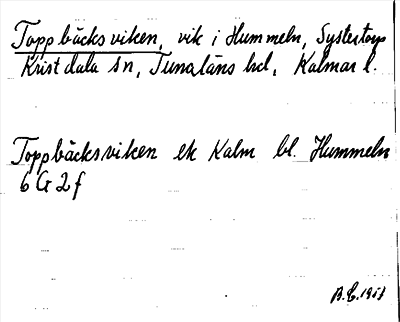 Toppbäcksviken, vik i Hummeln, Systertorp
Kristdala sn, Tunaläns hd, Kalmar l.
Toppbäcksviken ek Kalm bl. Hummeln
6 G 2 f